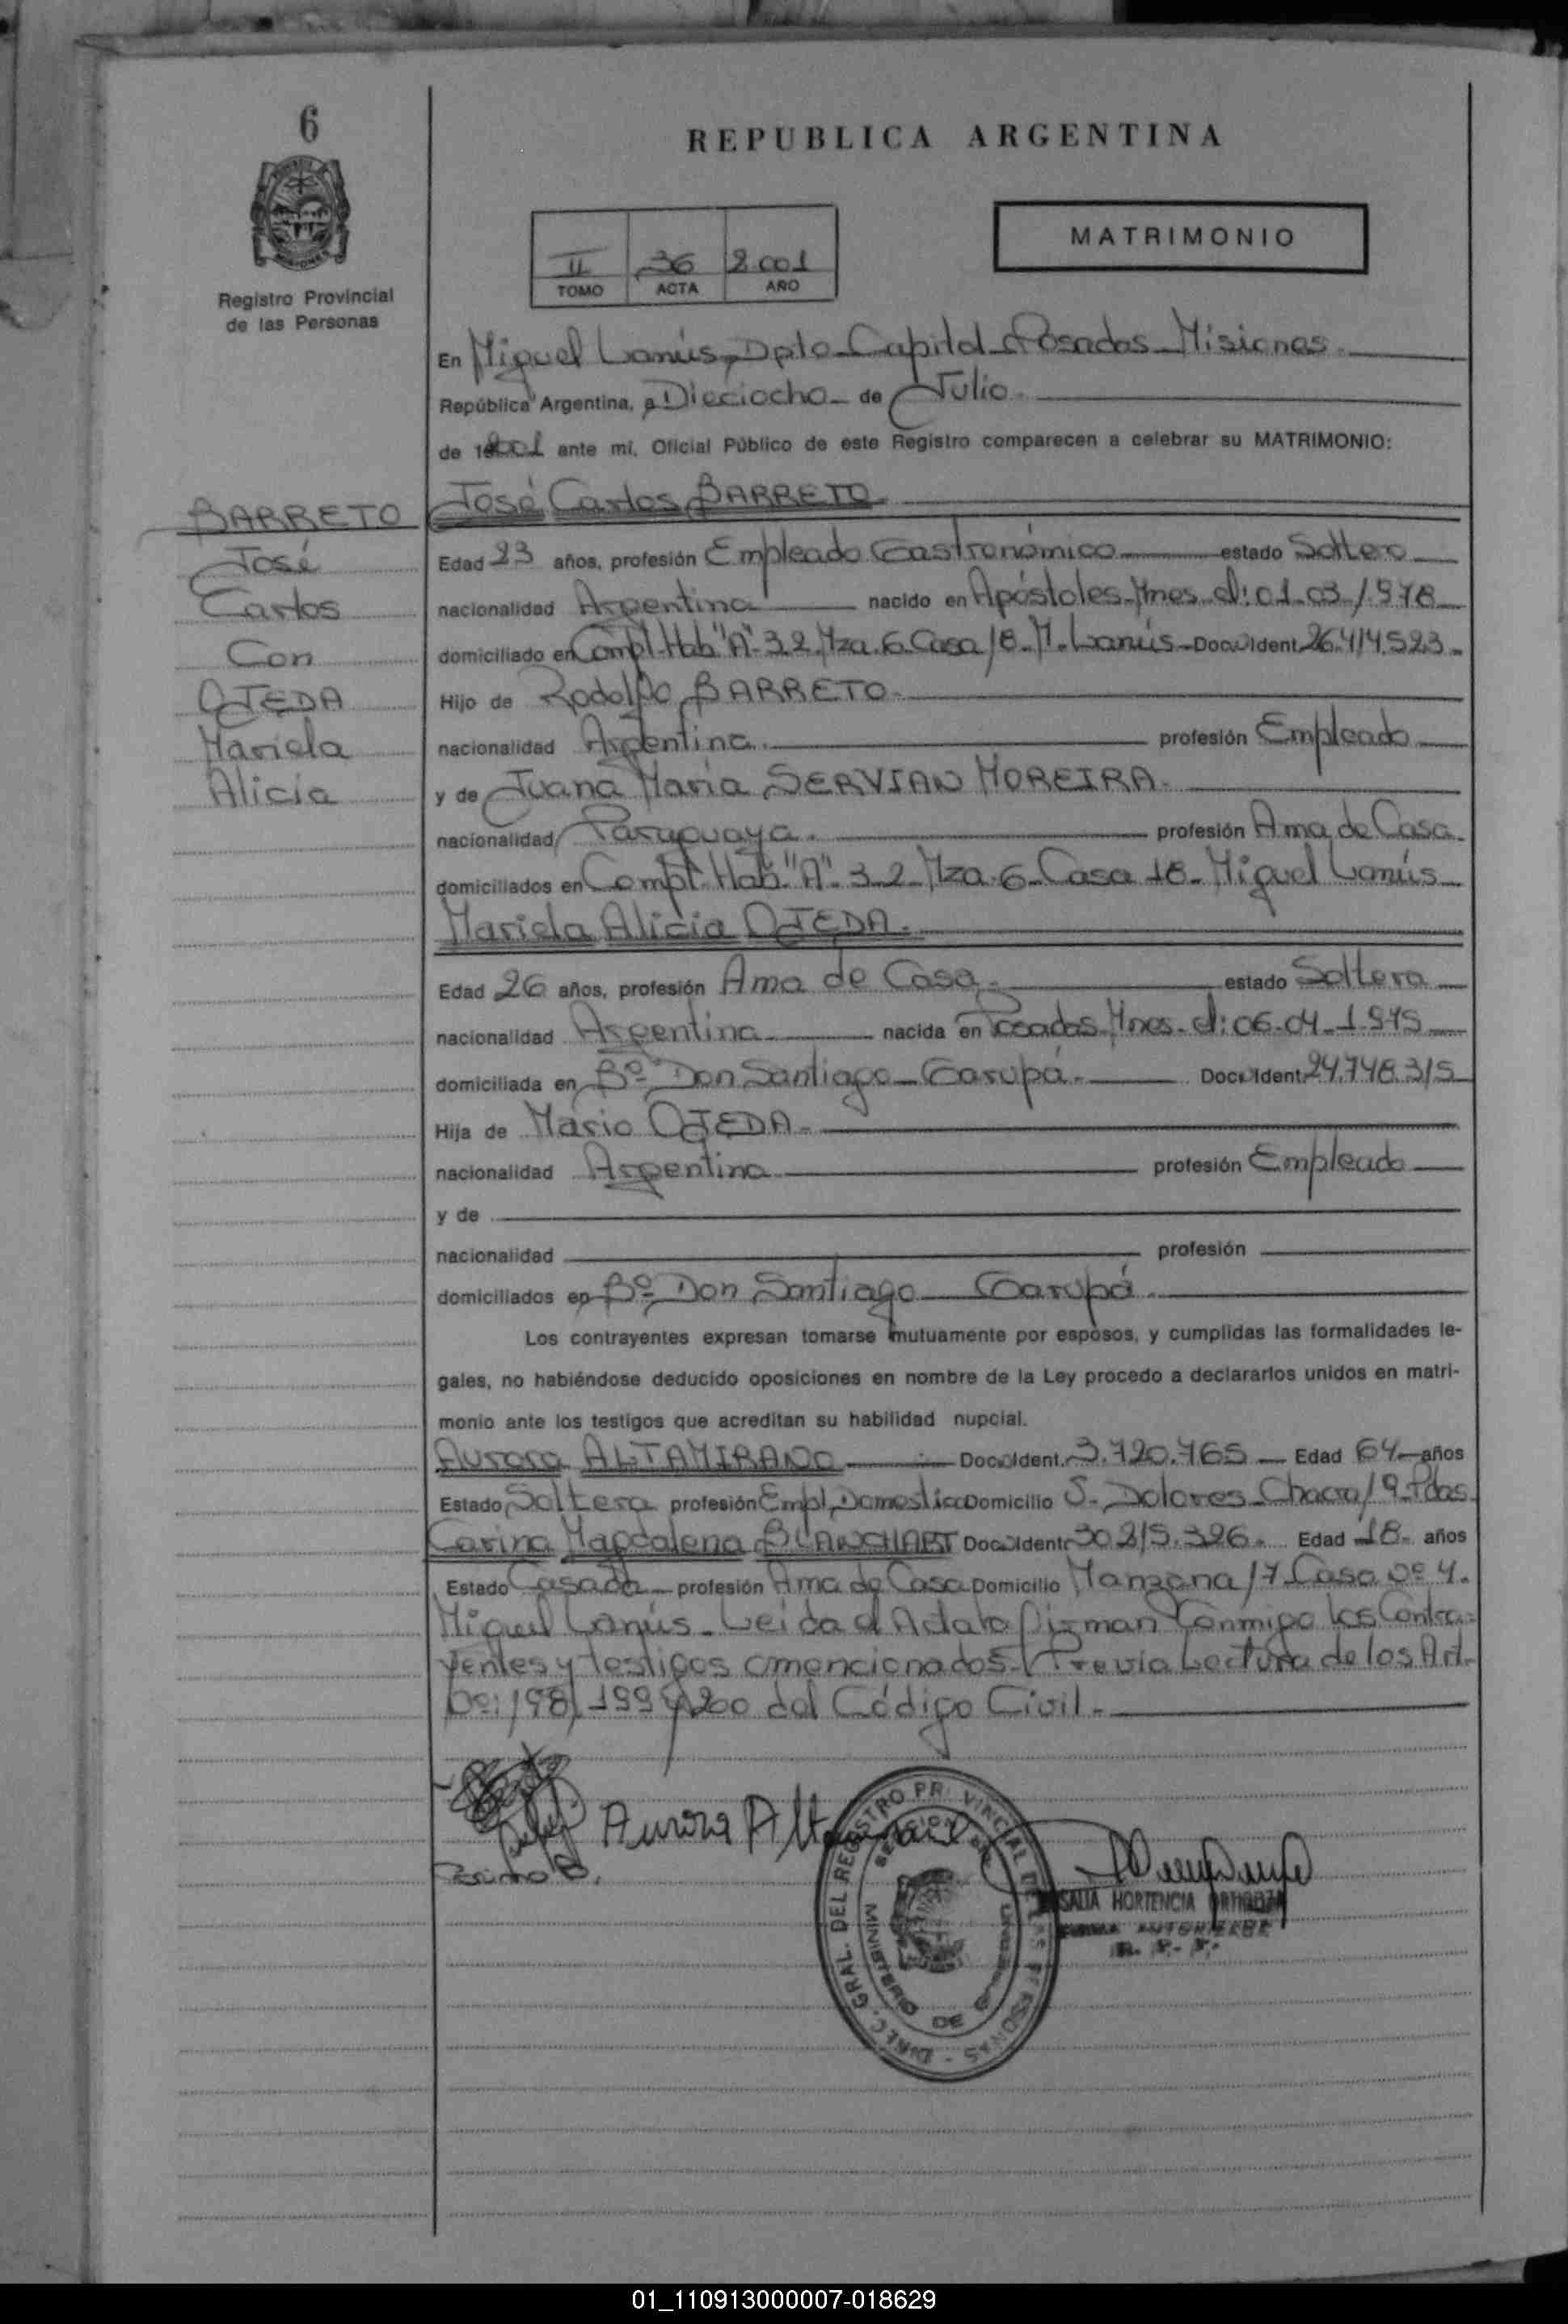 6
REPUBLICA ARGENTINA
MATRIMONIO
II 36 2.001
TOMO ACTA AÑO
Registro Provincial
de las Personas
En Miguel Lanús, Dpto Capital Posadas Misiones.
República Argentina, a Dieciocho de Julio
de 2001 ante mi, Oficial Público de este Registro comparecen a celebrar su MATRIMONIO:
José Carlos BARRETO
BARRETO
José
Carlos
Con
OJEDA
Mariela
Alicia
Edad 23 años, profesión Empleado Gastronómico estado Soltero
nacionalidad Argentina nacido en Apóstoles Mnes el: 01-03-1978
domiciliado en Compl. Hab "A" 32 Mza. 6 Casa 18. M. Lanús Doc. Ident. 26.414.523
Hijo de Rodolfo BARRETO
nacionalidad Argentina. profesión Empleado
y de Juana María SERVIAN MOREIRA
nacionalidad Paraguaya. profesión Ama de Casa
domiciliados en Compl. Hab. "A" 32 Mza 6 Casa 18 Miguel Lanús
Mariela Alicia OJEDA.
Edad 26 años, profesión Ama de Casa estado Soltera
nacionalidad Argentina nacida en Posadas Mnes. el: 06-04-1975
domiciliada en Bº Don Santiago Garupá Doc. Ident. 24.748.315
Hija de Mario OJEDA
nacionalidad Argentino profesión Empleado
y de
nacionalidad profesión
domiciliados en Bº Don Santiago Garupá
Los contrayentes expresan tomarse mutuamente por esposos, y cumplidas las formalidades le-
gales, no habiéndose deducido oposiciones en nombre de la Ley procedo a declararlos unidos en matri-
monio ante los testigos que acreditan su habilidad nupcial.
Aurora ALTAMIRANO Doc. Ident. 3.720.765 Edad 64 años
Estado Soltera profesión Empl. Domestica Domicilio S. Dolores Chacra 19 Pdas
Carina Magdalena BLANCHART Doc. Ident. 30.215.326 Edad 18 años
Estado Casada profesión Ama de Casa Domicilio Manzana 17 Casa Nº 4.
Miguel Lanús. Leída el Acta la firman Conmigo los Contra-
yentes y testigos mencionados. Previa Lectura de los Art.
Nº: 198, 199 y 200 del Código Civil.
Aurora Altamirano
DIREC. GRAL. DEL REGISTRO PROVINCIAL DE LAS PERSONAS
MINISTERIO DE GOBIERNO
HORTENCIA
R. P. P.
01_110913000007-018629